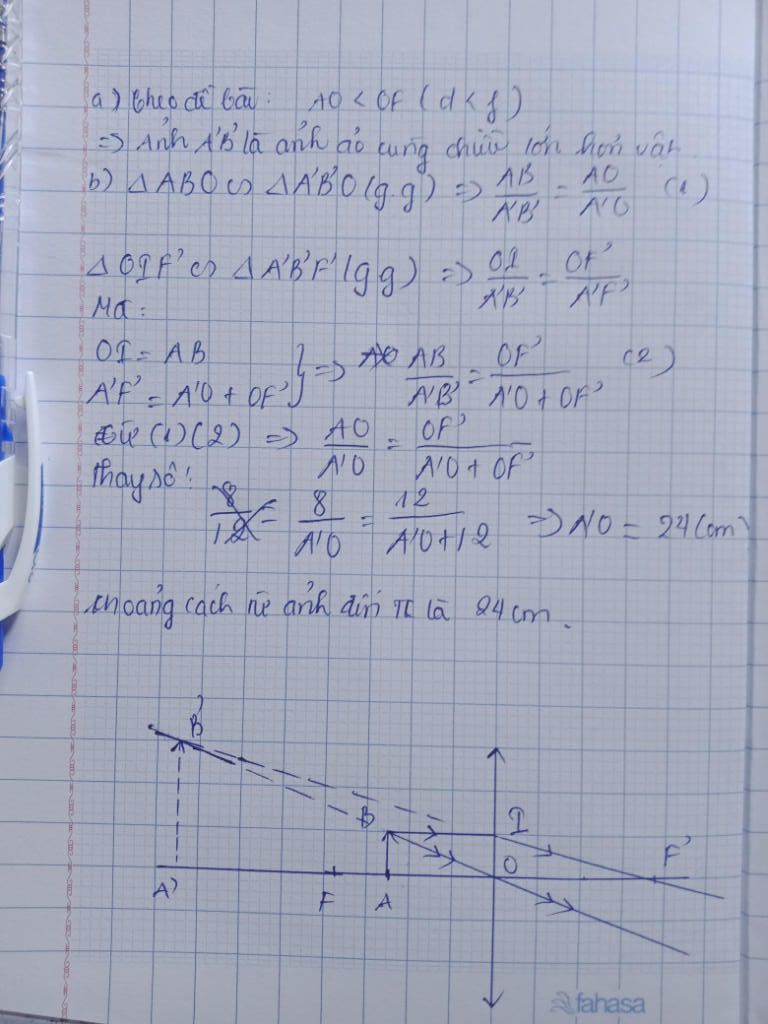 a) theo đề bài: AO < OF (d < f)
=> Ảnh A'B' là ảnh ảo cùng chiều lớn hơn vật
b) Δ ABO ∽ Δ A'B'O (g.g) => AB/A'B' = AO/A'O (1)
Δ OIF' ∽ Δ A'B'F' (gg) => OI/A'B' = OF'/A'F'
Mà:
OI = AB
A'F' = A'O + OF' } => AB/A'B' = OF'/(A'O + OF') (2)
từ (1)(2) => AO/A'O = OF'/(A'O + OF')
Thay số:
8/A'O = 12/(A'O+12) => A'O = 24 (cm)
khoảng cách từ ảnh đến TK là 24cm.
B'
B I
F'
O
A' F A
fahasa